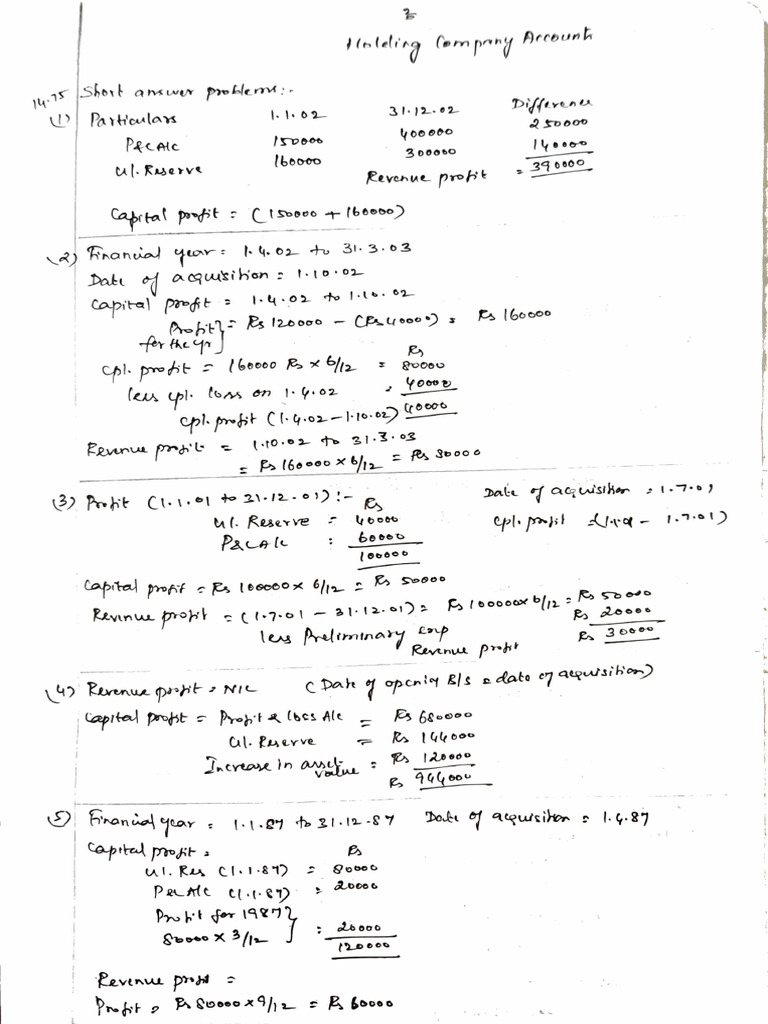 3
Holding Company Accounts
14.75 Short answer problems:-
(1) Particulars 1.1.02 31.12.02 Difference
P&L A/c 150000 400000 250000
Gl. Reserve 160000 300000 140000
Revenue profit = 390000
Capital profit = (150000 + 160000)
(2) Financial year = 1.4.02 to 31.3.03
Date of acquisition = 1.10.02
Capital profit = 1.4.02 to 1.10.02
Profit for the yr } = Rs 120000 - (Rs 40000) = Rs 160000
Rs
cpl. profit = 160000 Rs x 6/12 = 80000
less cpl. loss on 1.4.02 = 40000
cpl. profit (1.4.02 - 1.10.02) 40000
Revenue profit = 1.10.02 to 31.3.03
= Rs 160000 x 6/12 = Rs 80000
(3) Profit (1.1.01 to 31.12.01):- Rs Date of acquisition = 1.7.01
Gl. Reserve = 40000 cpl. profit = (1.1.01 - 1.7.01)
P&L A/c : 60000
100000
Capital profit = Rs 100000 x 6/12 = Rs 50000
Revenue profit = (1.7.01 - 31.12.01) = Rs 100000 x 6/12 = Rs 50000
less Preliminary exp Rs 20000
Revenue profit Rs 30000
(4) Revenue profit = NIL (Date of opening B/s = date of acquisition)
Capital profit = Profit & Loss A/c = Rs 680000
Gl. Reserve = Rs 144000
Increase in asset value = Rs 120000
Rs 944000
(5) Financial year = 1.1.87 to 31.12.87 Date of acquisition = 1.4.87
Capital profit = Rs
Gl. Res (1.1.87) = 80000
P&L A/c (1.1.87) = 20000
Profit for 1987 }
80000 x 3/12 } = 20000
120000
Revenue profit =
Profit = Rs 80000 x 9/12 = Rs 60000